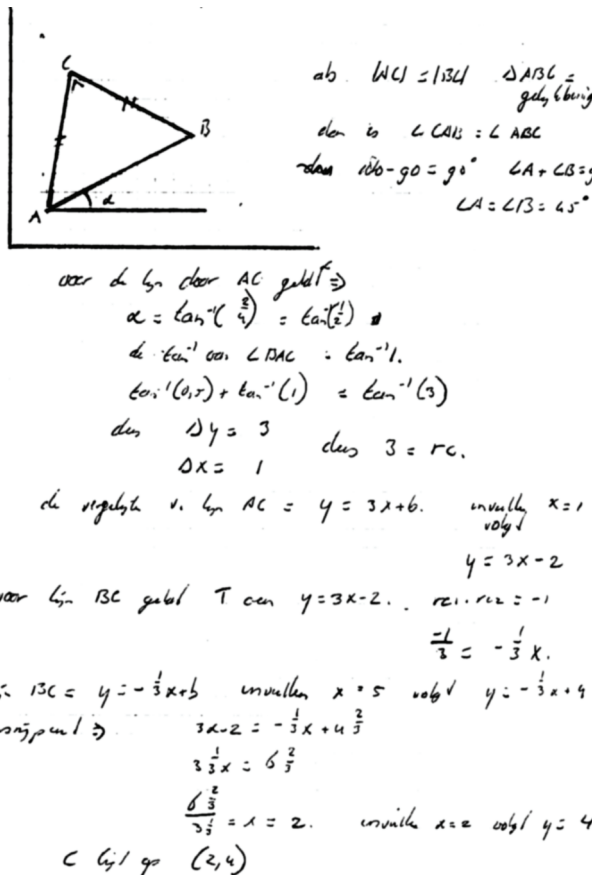 C
B
A
α
als |AC| = |BC| △ABC =
gelijkbenig
dan is ∠CAB = ∠ABC
dan 180-90 = 90° ∠A + ∠B = 9
∠A = ∠B = 45°
voor de lijn door AC geldt ⇒
α = tan⁻¹(2/4) = tan⁻¹(1/2)
de tan⁻¹ van ∠BAC = tan⁻¹ 1.
tan⁻¹(0,5) + tan⁻¹(1) = tan⁻¹(3)
dus Δy = 3
Δx = 1
dus 3 = rc.
de vergelijk v. lijn AC = y = 3x+b. invullen x = 1
volgt
y = 3x - 2
voor lijn BC geldt ⊥ aan y = 3x - 2. rc1 . rc2 = -1
-1/3 = -1/3 x.
BC = y = -1/3x+b invullen x = 5 volgt y = -1/3x + 4
⇒ 3x-2 = -1/3x + 4 2/3
3 1/3x = 6 2/3
6 2/3 / 3 1/3 = x = 2. invullen x=2 volgt y = 4
C ligt op (2,4)